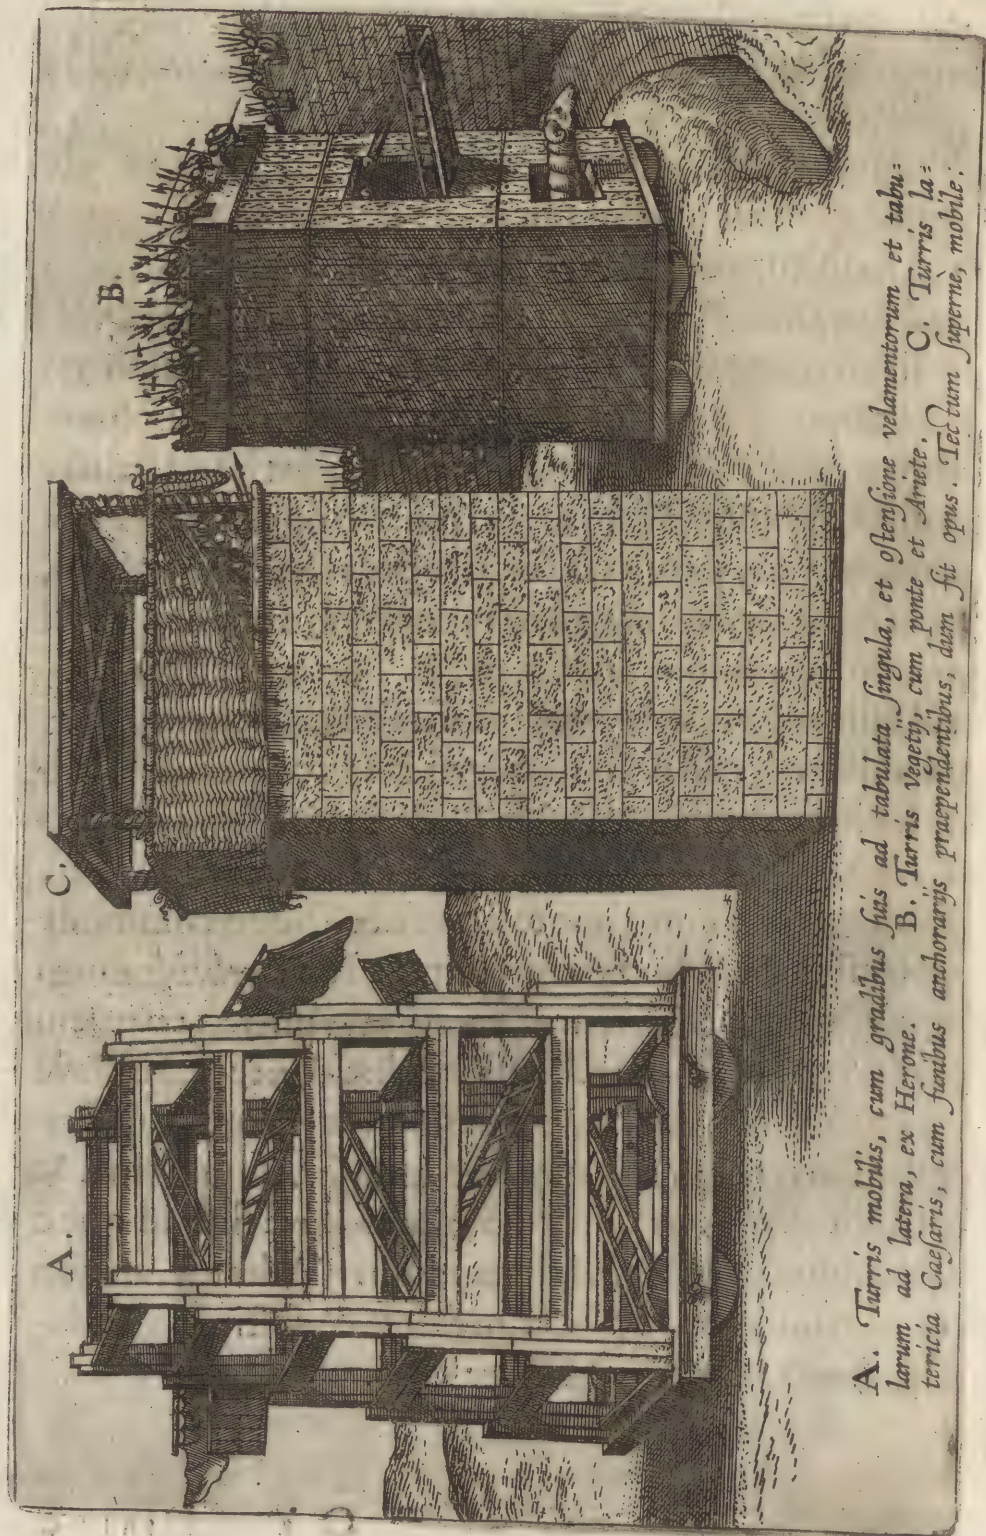 A.
C.
B.
A. Turris mobilis, cum gradibus suis ad tabulata singula, et ostensione velamentorum et tabu=
larum ad latera, ex Herone. B. Turris Vegetij, cum ponte et Ariete. C. Turris la=
tericia Caesaris, cum funibus anchorarijs praependentibus, dum fit opus. Tectum supernè, mobile.